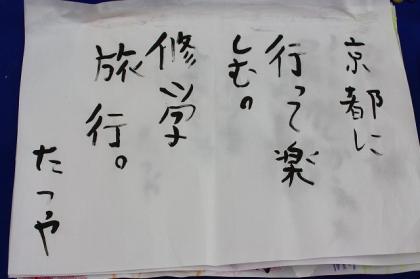 京都に
行って楽
しむ。
修学
旅行。
たつや